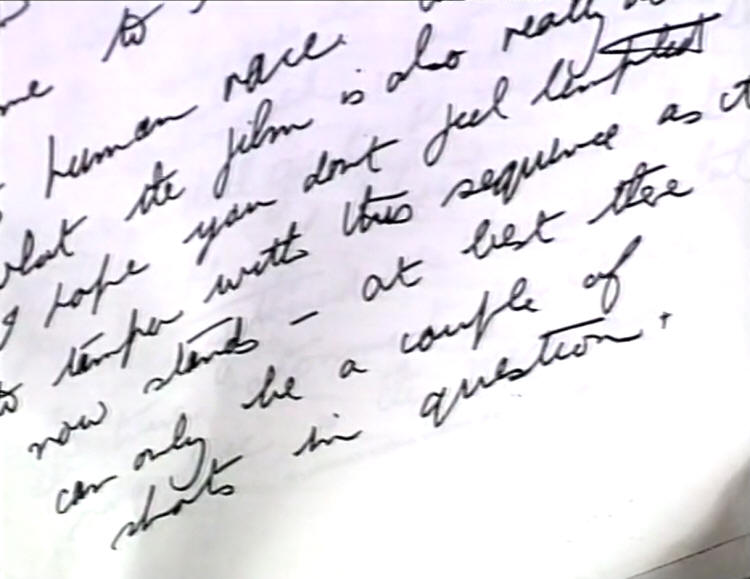 me to
human race.
what the film is also really
I hope you dont feel tempted
to temper with this sequence as it
now stands – at best there
can only be a couple of
shots in question.